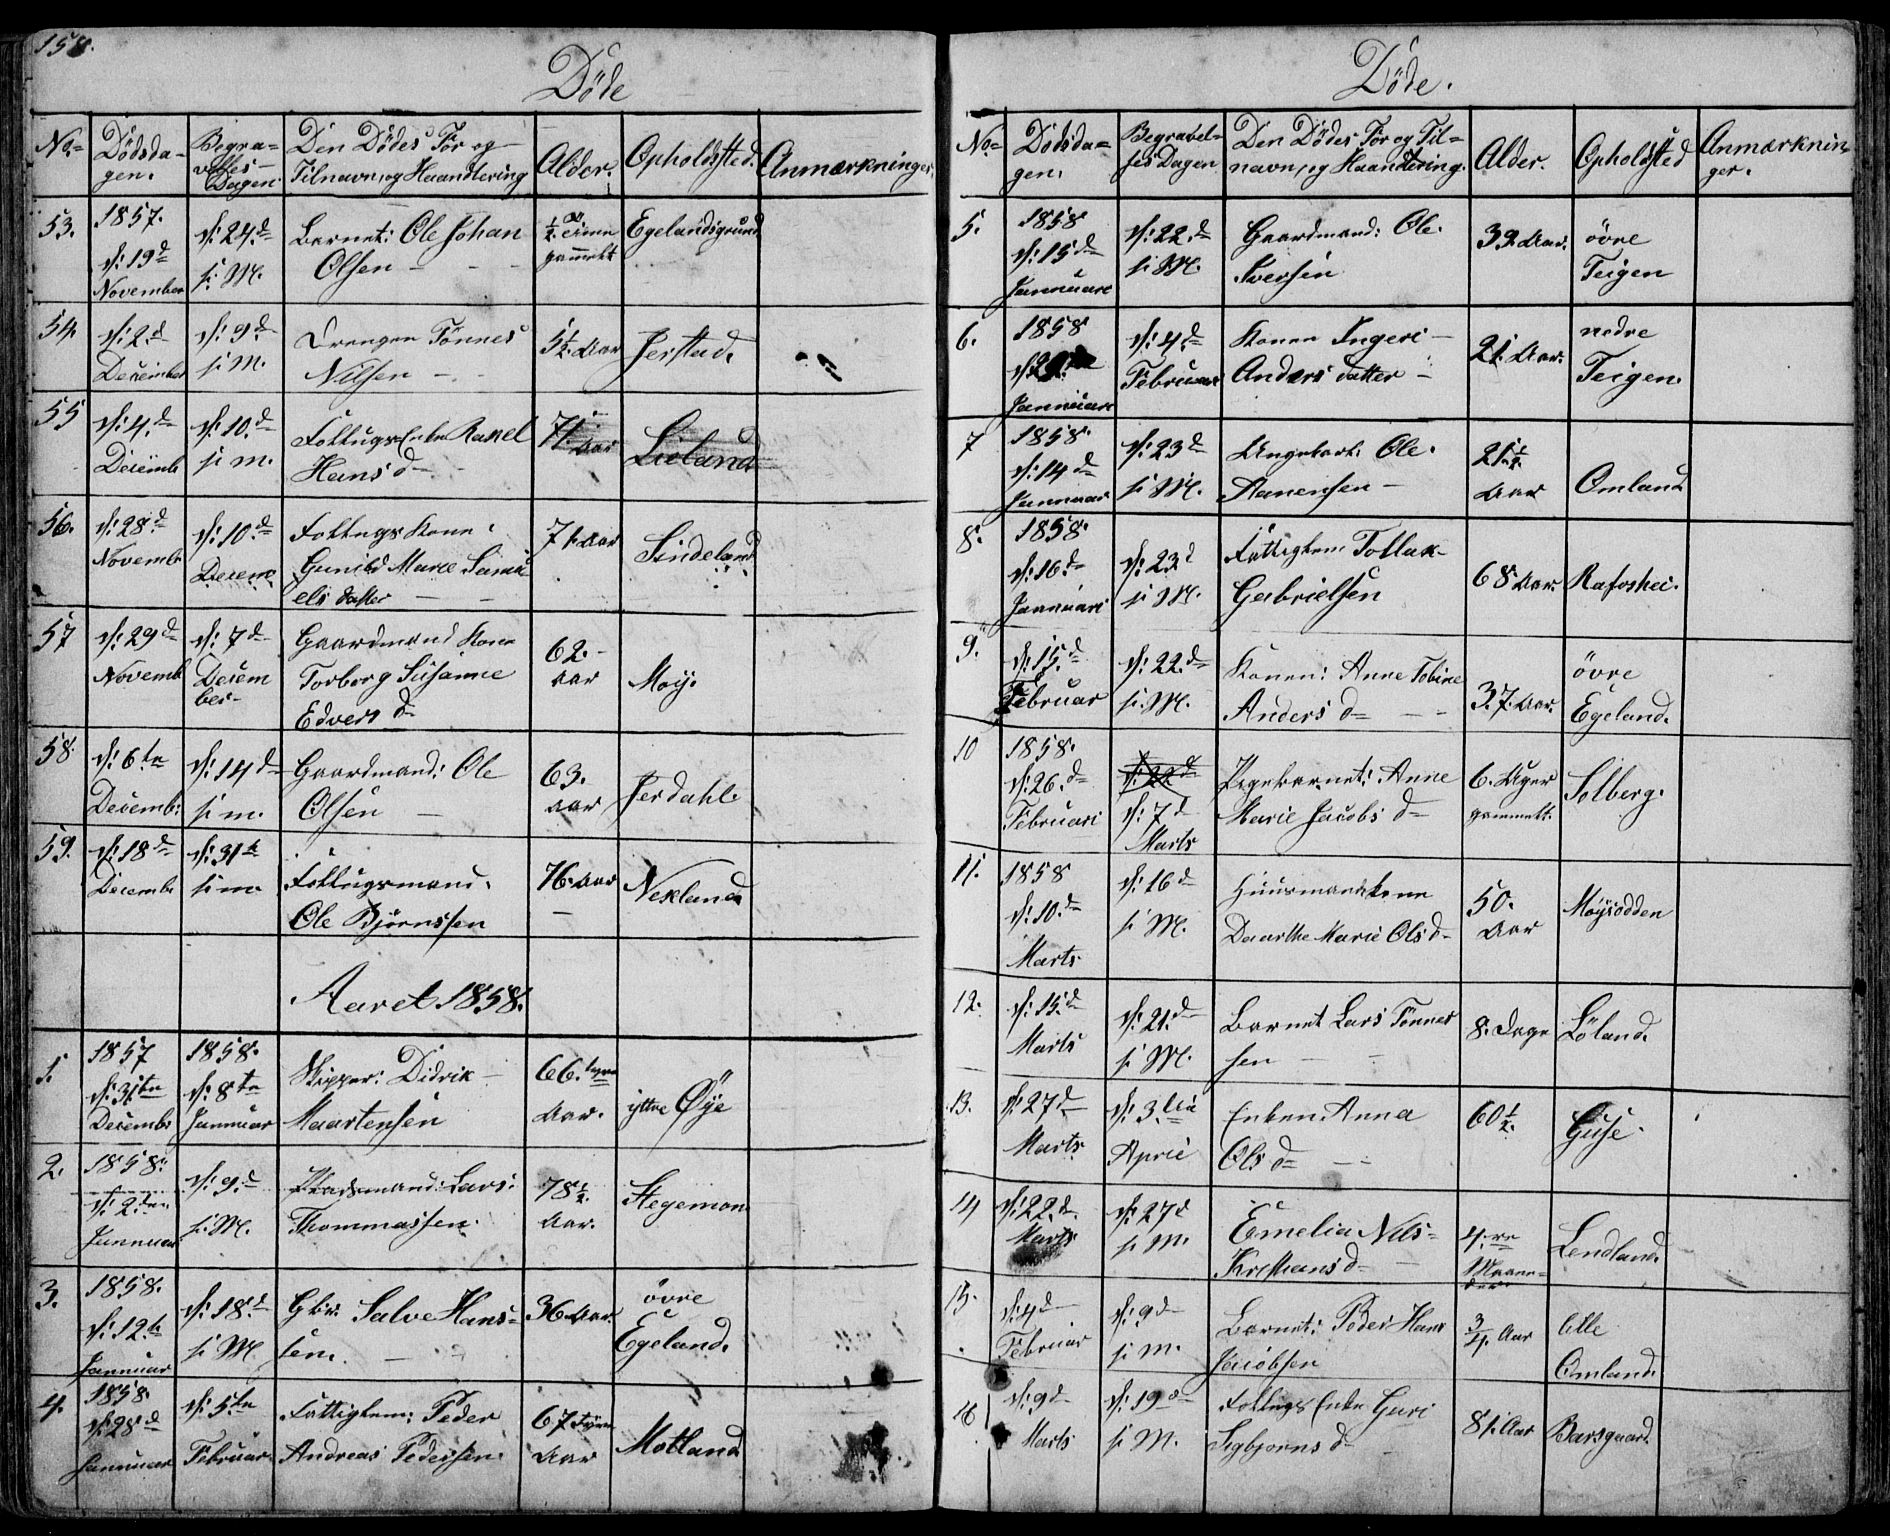 158.
Døde
No= Dødsda= gen. Begra= velses= Dagen Den Dødes For og Tilnavn, og Haandtering Alder. Opholdsted. Anmærkninger.
53. 1857. d: 19d November d: 24d s: M. Barnet: Ole Johan Olsen ½ gammelt Egelandsgrund
54. d: 2d December d: 9d s: M. Drengen Tønnes Nilsen 5½ Aar Jerstad.
55 d: 4d Decemb d: 10d s: m. Follugs Enke Rakel Hans d= 71 Aar Lieland
56. d: 28d Novemb d: 10d Decem Follugs Kone Gunild Marie Samu els datter 71 Aar Sindeland
57 d: 29d Novemb d: 7d Decem ber Gaardmand Kone Torborg Susanne Edvers d= 62. Aar Moy.
58. d: 6te Decemb: d: 14d s: m. Gaardmand: Ole Olsen 63. Aar Jerdahl.
59. d: 18d Decemb: d: 31te s: m. Follugsmand. Ole Bjørnssen 76 Aar Nekland
Aaret 1858.
1. 1857 d: 31te Decemb: 1858. d: 8te Januar Skipper: Didrik Maartensen 66. Aar. yttre Øÿe
2. 1858. d: 2den Januar d: 9d s: M. Lars: Thommassen. 78½ Aar. Stegemoen
3. 1858. d: 12te Januar d: 18d s: M Gbr: Salve Hans= sen. 36 Aar. övre Egeland.
4. 1858 d: 28d Januar d: 5te Februar Fattiglem: Peder Andreas Pedersen. 67 Aar Motland
Døde.
No= Dødsda= gen. Begravel= ses Dagen Den Dødes For og Til= navn, og Haandtering. Alder. Opholdsted Anmærknin ger.
5. 1858 d: 15d Januari d: 22d s: M. Gaardmand: Ole. Iversen 39. Aar. övre Teigen
6. 1858 Januari d: 4d Februar Konen Ingeri Anders datter 21. Aar. nedre Teigen.
7 1858. d: 14d Januar d: 23d s: M. Ungekarl: Ole. Aanensen 21½ Aar Omland
8. 1858. d: 16d Januari d: 23d s: M. Fattiglem Tollak Gabrielsen 68 Aar. Rafoshei.
9. d: 15d Februar d: 22d s: M. Konen: Anne Tobine Anders d= 37. Aar. övre Egeland.
10 1858. d: 26d Februari d: 22d d: 7d Marts Pigebarnet: Anne Marie Jacobs d= 6. Uger gammelt. Solberg.
11. 1858 d: 10d Marts d: 16d s: M. Huusmandskone Daarthe Marie Ols d= 50. Aar Moysodden
12. d: 15d Marts d: 21d s: M. Barnet Lars Tønnes sen 8. Dage Löland.
13. d: 27d Marts d: 3die April Enken Anna Ols d= 60½. Guse.
14 d: 22d Marts d: 27d s: M. Emelia Nils= Kristians d= 4re Maane= der Lendland.
15. d: 4d Februar d: 9d s: M. Barnet: Peder Hans Jacobsen ¾ Aar lille Omland.
16 d: 9d Marts d: 19d s: M. Follugs Enke Guri Sigbjørns d= 81. Aar Barsgaard.